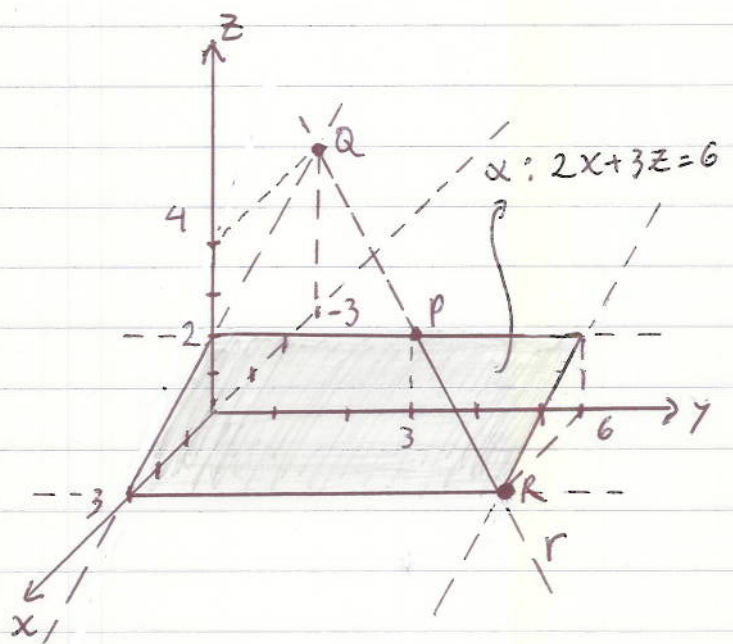 z
Q
α: 2x+3z=6
4
-3
P
2
3
6
y
3
R
r
x